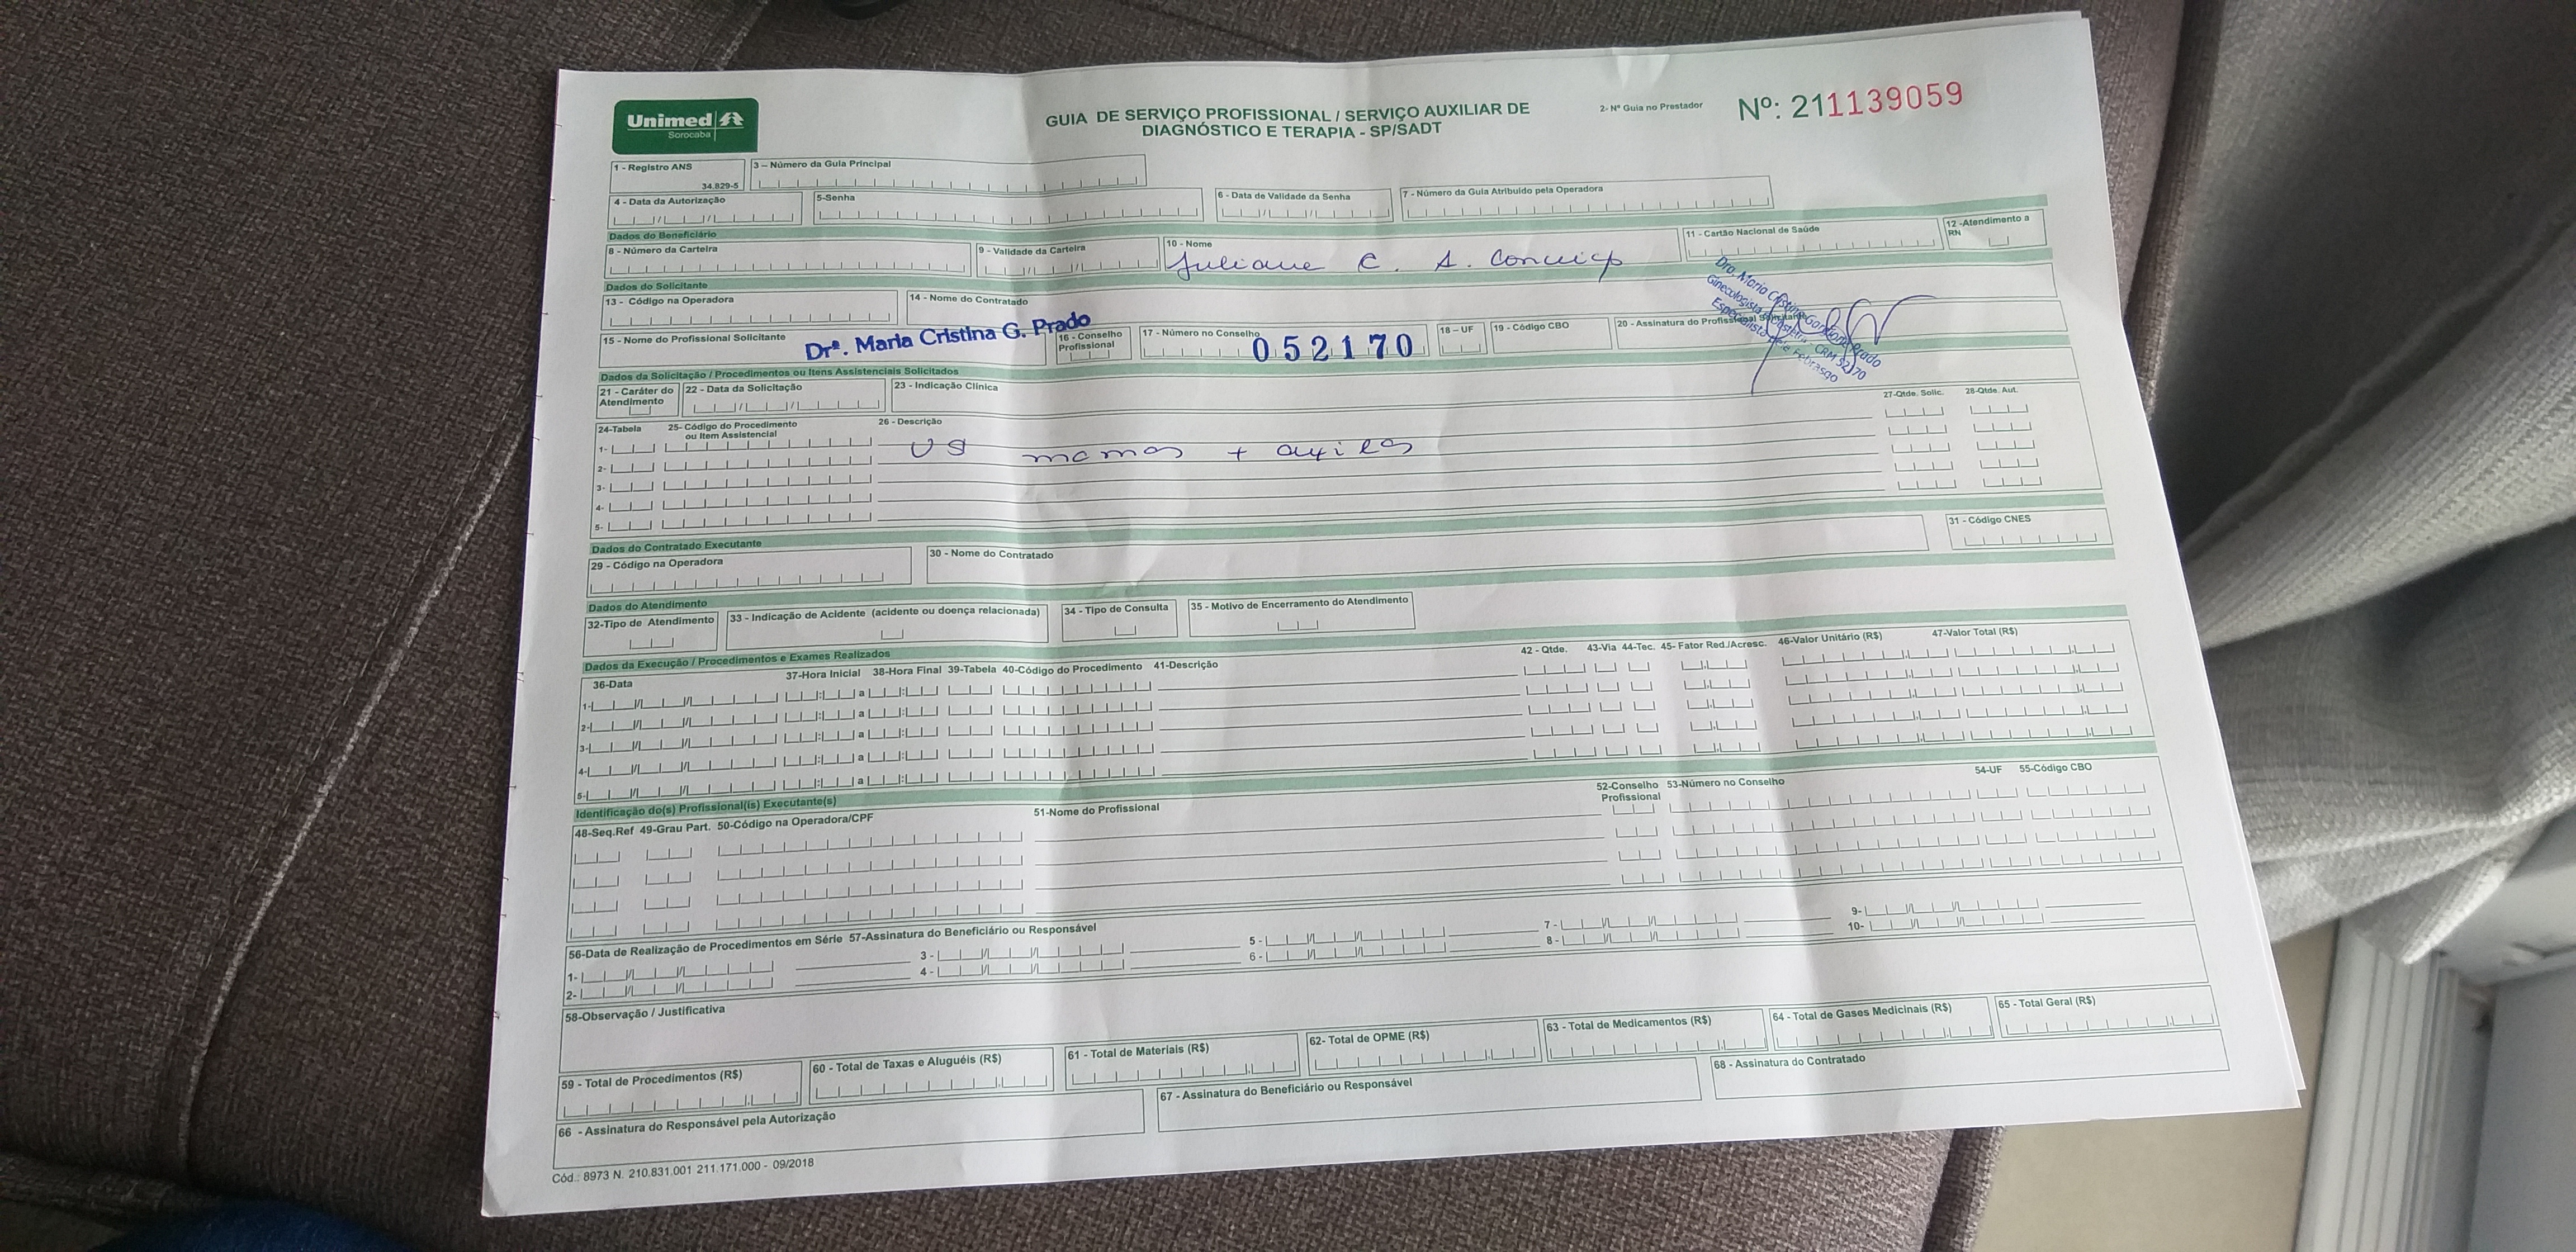 Unimed
Sorocaba
GUIA DE SERVIÇO PROFISSIONAL / SERVIÇO AUXILIAR DE
DIAGNÓSTICO E TERAPIA - SP/SADT
2- Nº Guia no Prestador
Nº: 211139059
1 - Registro ANS
34.829-5
3 – Número da Guia Principal
4 - Data da Autorização
5-Senha
6 - Data de Validade da Senha
7 - Número da Guia Atribuido pela Operadora
Dados do Beneficiário
8 - Número da Carteira
9 - Validade da Carteira
10 - Nome
Juliane C. A. Conceiç
11 - Cartão Nacional de Saúde
12 -Atendimento a
RN
Dados do Solicitante
13 - Código na Operadora
14 - Nome do Contratado
15 - Nome do Profissional Solicitante
Drª. Maria Cristina G. Prado
16 - Conselho
Profissional
17 - Número no Conselho
052170
18 – UF
19 - Código CBO
20 - Assinatura do Profissional Solicitante
Dra. Maria Cristina Prado
Ginecologista CRM 52170
Especialista pela Febrasgo
Dados da Solicitação / Procedimentos ou Itens Assistenciais Solicitados
21 - Caráter do
Atendimento
22 - Data da Solicitação
23 - Indicação Clinica
24-Tabela
25- Código do Procedimento
ou Item Assistencial
26 - Descrição
27-Qtde. Solic.
28-Qtde. Aut.
1-
US mamas + axilas
2-
3-
4-
5-
Dados do Contratado Executante
29 - Código na Operadora
30 - Nome do Contratado
31 - Código CNES
Dados do Atendimento
32-Tipo de Atendimento
33 - Indicação de Acidente (acidente ou doença relacionada)
34 - Tipo de Consulta
35 - Motivo de Encerramento do Atendimento
Dados da Execução / Procedimentos e Exames Realizados
36-Data 37-Hora Inicial 38-Hora Final 39-Tabela 40-Código do Procedimento 41-Descrição 42 - Qtde. 43-Via 44-Tec. 45- Fator Red./Acresc. 46-Valor Unitário (R$) 47-Valor Total (R$)
1- a
2- a
3- a
4- a
5- a
Identificação do(s) Profissional(is) Executante(s)
48-Seq.Ref 49-Grau Part. 50-Código na Operadora/CPF 51-Nome do Profissional
52-Conselho
Profissional
53-Número no Conselho 54-UF 55-Código CBO
56-Data de Realização de Procedimentos em Série 57-Assinatura do Beneficiário ou Responsável
1- 3 - 5 - 7 - 9-
2- 4 - 6 - 8 - 10-
58-Observação / Justificativa
59 - Total de Procedimentos (R$)
60 - Total de Taxas e Aluguéis (R$)
61 - Total de Materiais (R$)
62- Total de OPME (R$)
63 - Total de Medicamentos (R$)
64 - Total de Gases Medicinais (R$)
65 - Total Geral (R$)
66 - Assinatura do Responsável pela Autorização
67 - Assinatura do Beneficiário ou Responsável
68 - Assinatura do Contratado
Cód.: 8973 N. 210.831.001 211.171.000 - 09/2018